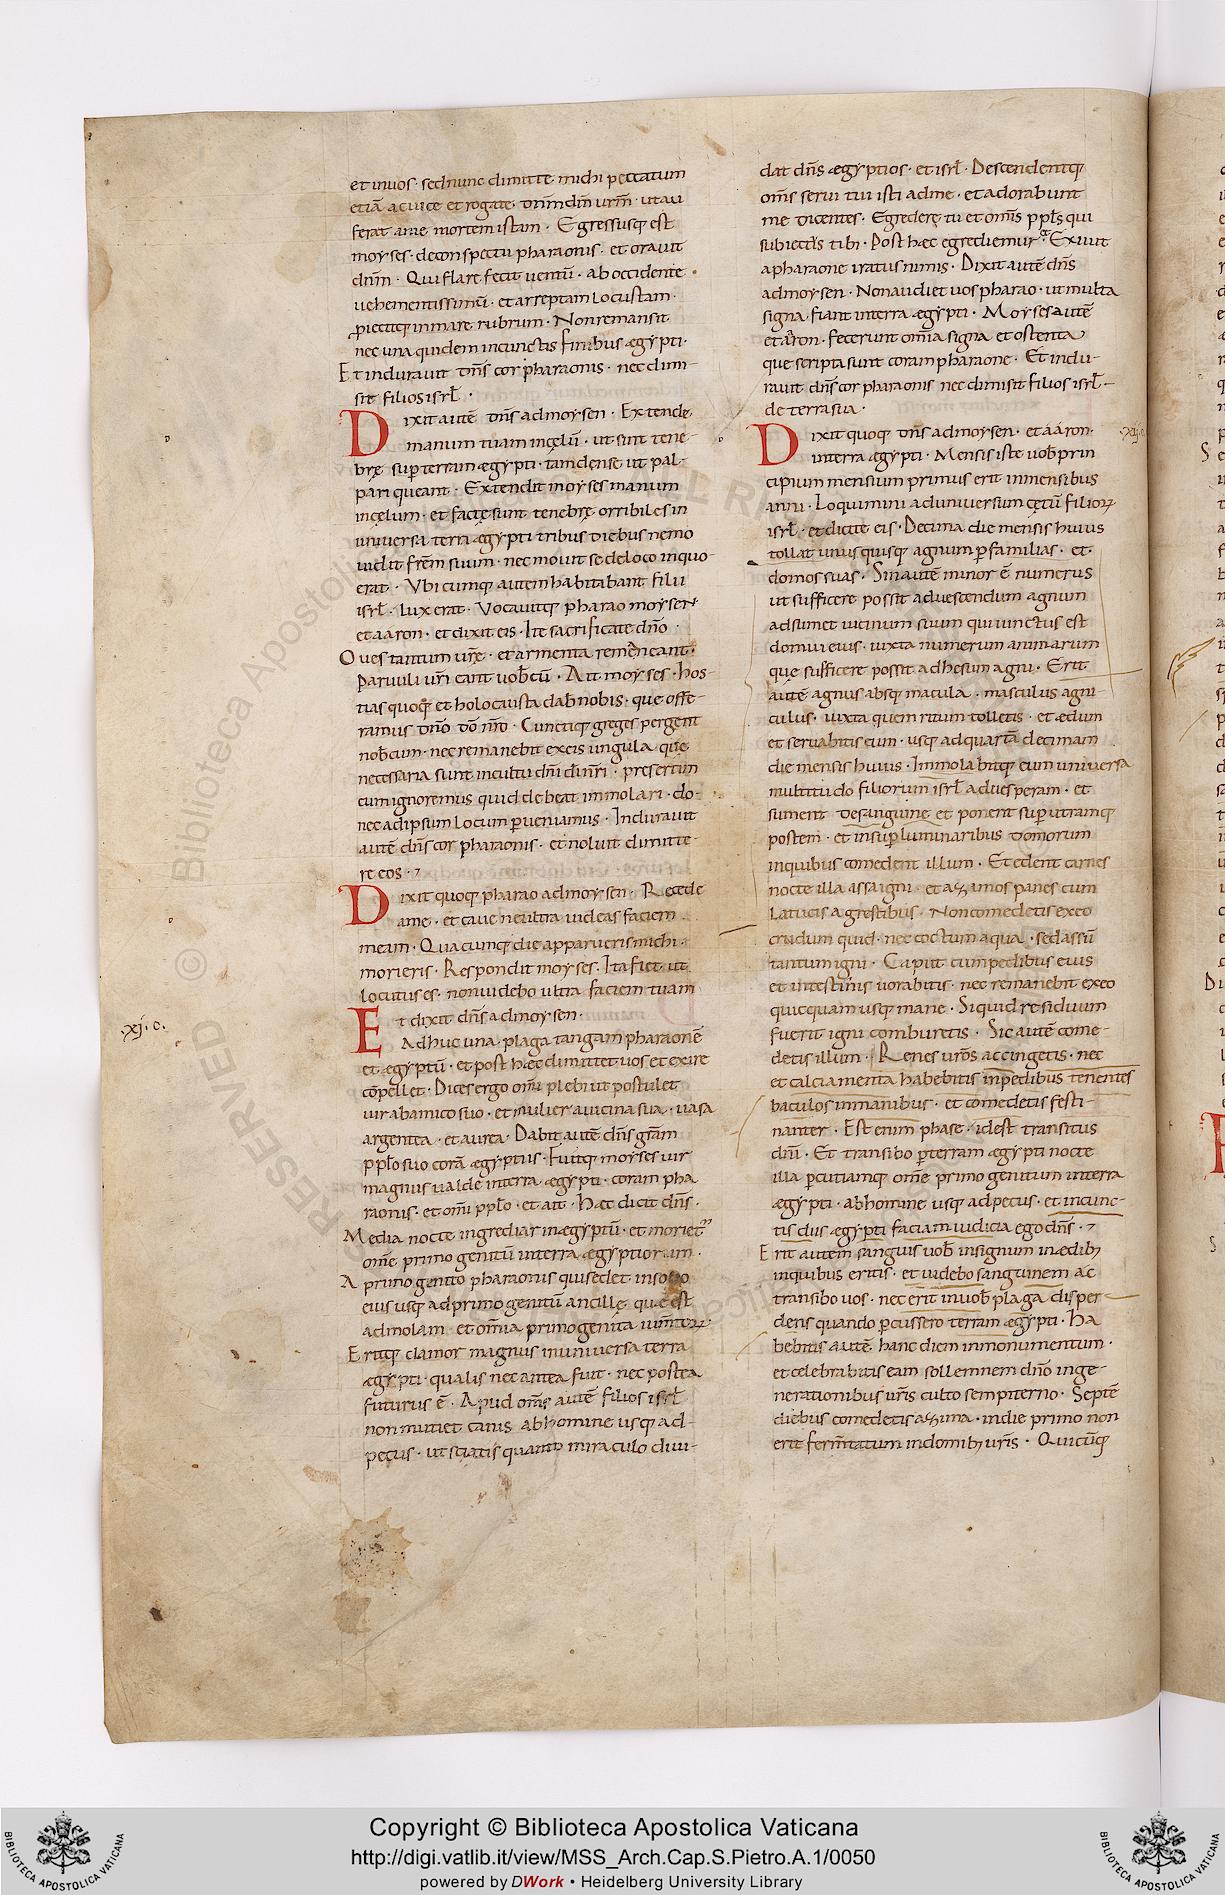 et in uos · sed nunc dimitte michi peccatum
etiā ac uice et rogate dnm dm urm · ut au
ferat a me mortem istam · Egressusq; est
moyses · de conspectu pharaonis · et orauit
dnm · Qui flare fecit uentū · ab occidente
uehementissimū · et arreptam locustam ·
proiecitq; in mare rubrum · Non remansit
nec una quidem in cunctis finibus ægypti ·
Et indurauit dns cor pharaonis · nec dimi-
sit filios isrl ·
Dixit autē dns ad moysen · Extende
manum tuam in cęlū · ut sint tene-
brę sup terram ægypti · tam dense ut pal-
pari queant · Extendit moyses manum
in cęlum · et factę sunt tenebrę orribiles in
uniuersa terra ægypti tribus diebus nemo
uidit frem suum · nec mouit se de loco in quo
erat · Vbicumq; autem habitabant filii
isrl · lux erat · Vocauitq; pharao moysen
et aaron · et dixit eis · Ite sacrificate dno ·
Oues tantum ure · et armenta remaneant ·
Paruuli uri eant uobcū · Ait moyses · Hos-
tias quoq; et holocausta dab nobis · que offe-
ramus dno do nro · Cunctiq; greges pergent
nobcum · nec remanebit ex eis ungula que
necessaria sunt in cultū dni di nri · presertim
cum ignoremus quid debeat immolari · do-
nec ad ipsum locum pueniamus · Indurauit
autē dns cor pharaonis · et noluit dimitte-
re eos ·
Dixit quoq; pharao ad moysen · Recede
a me · et caue ne ultra uideas faciem
meam · Quacumq; die apparueris michi ·
morieris · Respondit moyses · Ita fiet ut
locutus es · non uidebo ultra faciem tuam
Et dixit dns ad moysen ·
·xj· c·
Adhuc una plaga tangam pharaonē
et ægyptū · et post hęc dimittet uos et exire
cōpellet · Dices ergo omi plebi ut postulet
uir ab amico suo · et mulier a uicina sua · uasa
argentea · et aurea · Dabit autē dns gram
pplo suo corā ægyptiis · Fuitq; moyses uir
magnus ualde in terra ægypti · coram pha
raonis · et omi pplo · et ait · Hæc dicit dns ·
Media nocte ingrediar in ægyptū · et moriet
ome primogenitū in terra ægyptiorum ·
A primogenito pharaonis qui sedet in solio
eius usq; ad primogenitū ancillę · quę est
ad molam et omia primogenita iumtorum
Eritq; clamor magnus in uniuersa terra
ægypti · qualis nec antea fuit · nec postea
futurus ē · Apud oms autē filios isrl
non mutiet canis ab homine usq; ad
pecus · ut sciatis quanto miraculo diui-
dat dns ægyptios · et isrl · Descendentq;
oms serui tui isti ad me · et adorabunt
me dicentes · Egredere tu et omis ppls qui
subiectus tibi · Post hæc egrediemur · Exiuit
a pharaone iratus nimis · Dixit autē dns
ad moysen · Non audiet uos pharao · ut multa
signa fiant in terra ægypti · Moyses autē
et aron · fecerunt omia signa et ostenta
que scripta sunt coram pharaone · Et indu-
rauit dns cor pharaonis nec dimisit filios isrl
de terra sua ·
Dixit quoq; dns ad moysen · et aaron ·
·xij· c·
in terra ægypti · Mensis iste uob prin
cipium mensium primus erit in mensibus
anni · Loquimini ad uniuersum cętū filiorum
isrl · et dicite eis · Decima die mensis huius
tollat unusquisq; agnum p familias · et
domos suas · Sin autē minor ē numerus
ut sufficere possit ad uescendum agnum
adsumet uicinum suum qui iunctus est
domui eius · iuxta numerum animarum
que sufficere possit ad hesum agni · Erit
autē agnus absq; macula · masculus agni
culus · iuxta quem ritum tolletis · et ædum
et seruabitis eum · usq; ad quartā decimam
die mensis huius · Immolabitq; eum uniuersa
multitudo filiorum isrl ad uesperam · et
sument de sanguine et ponent sup utramq;
postem · et in sup luminaribus domorum
in quibus comedent illum · Et edent carnes
nocte illa assa igni · et azimos panes cum
latucis agrestibus · Non comedetis ex eo
crudum quid · nec coctum aqua · sed assū
tantum igni · Caput cum pedibus eius
et intestinis uorabitis · nec remanebit ex eo
quicquam usq; mane · Si quid residuum
fuerit igni comburetis · Sic autē come-
detis illum · Renes uros accingetis · nec
et calciamenta habebitis in pedibus tenentes
baculos in manibus · et comedetis festi-
nanter · Est enim phase · idest transitus
dni · Et transibo p terram ægypti nocte
illa pcutiamq; ome primogenitum in terra
ægypti · ab homine usq; ad pecus · et in cunc-
tis diis ægypti faciam iudicia ego dns ·
Erit autem sanguis uob in signum in ædib;
in quibus eritis · et uidebo sanguinem ac
transibo uos · nec erit in uob plaga disper
dens quando pcussero terram ægypti · Ha
bebitis autē hanc diem in monumentum ·
et celebrabitis eam sollemnem dno in ge-
nerationibus uris culto sempiterno · Septē
diebus comedetis azima · in die primo non
erit fermtatum in domib; uris · Quicūq;
Copyright © Biblioteca Apostolica Vaticana
http://digi.vatlib.it/view/MSS_Arch.Cap.S.Pietro.A.1/0050
powered by DWork • Heidelberg University Library